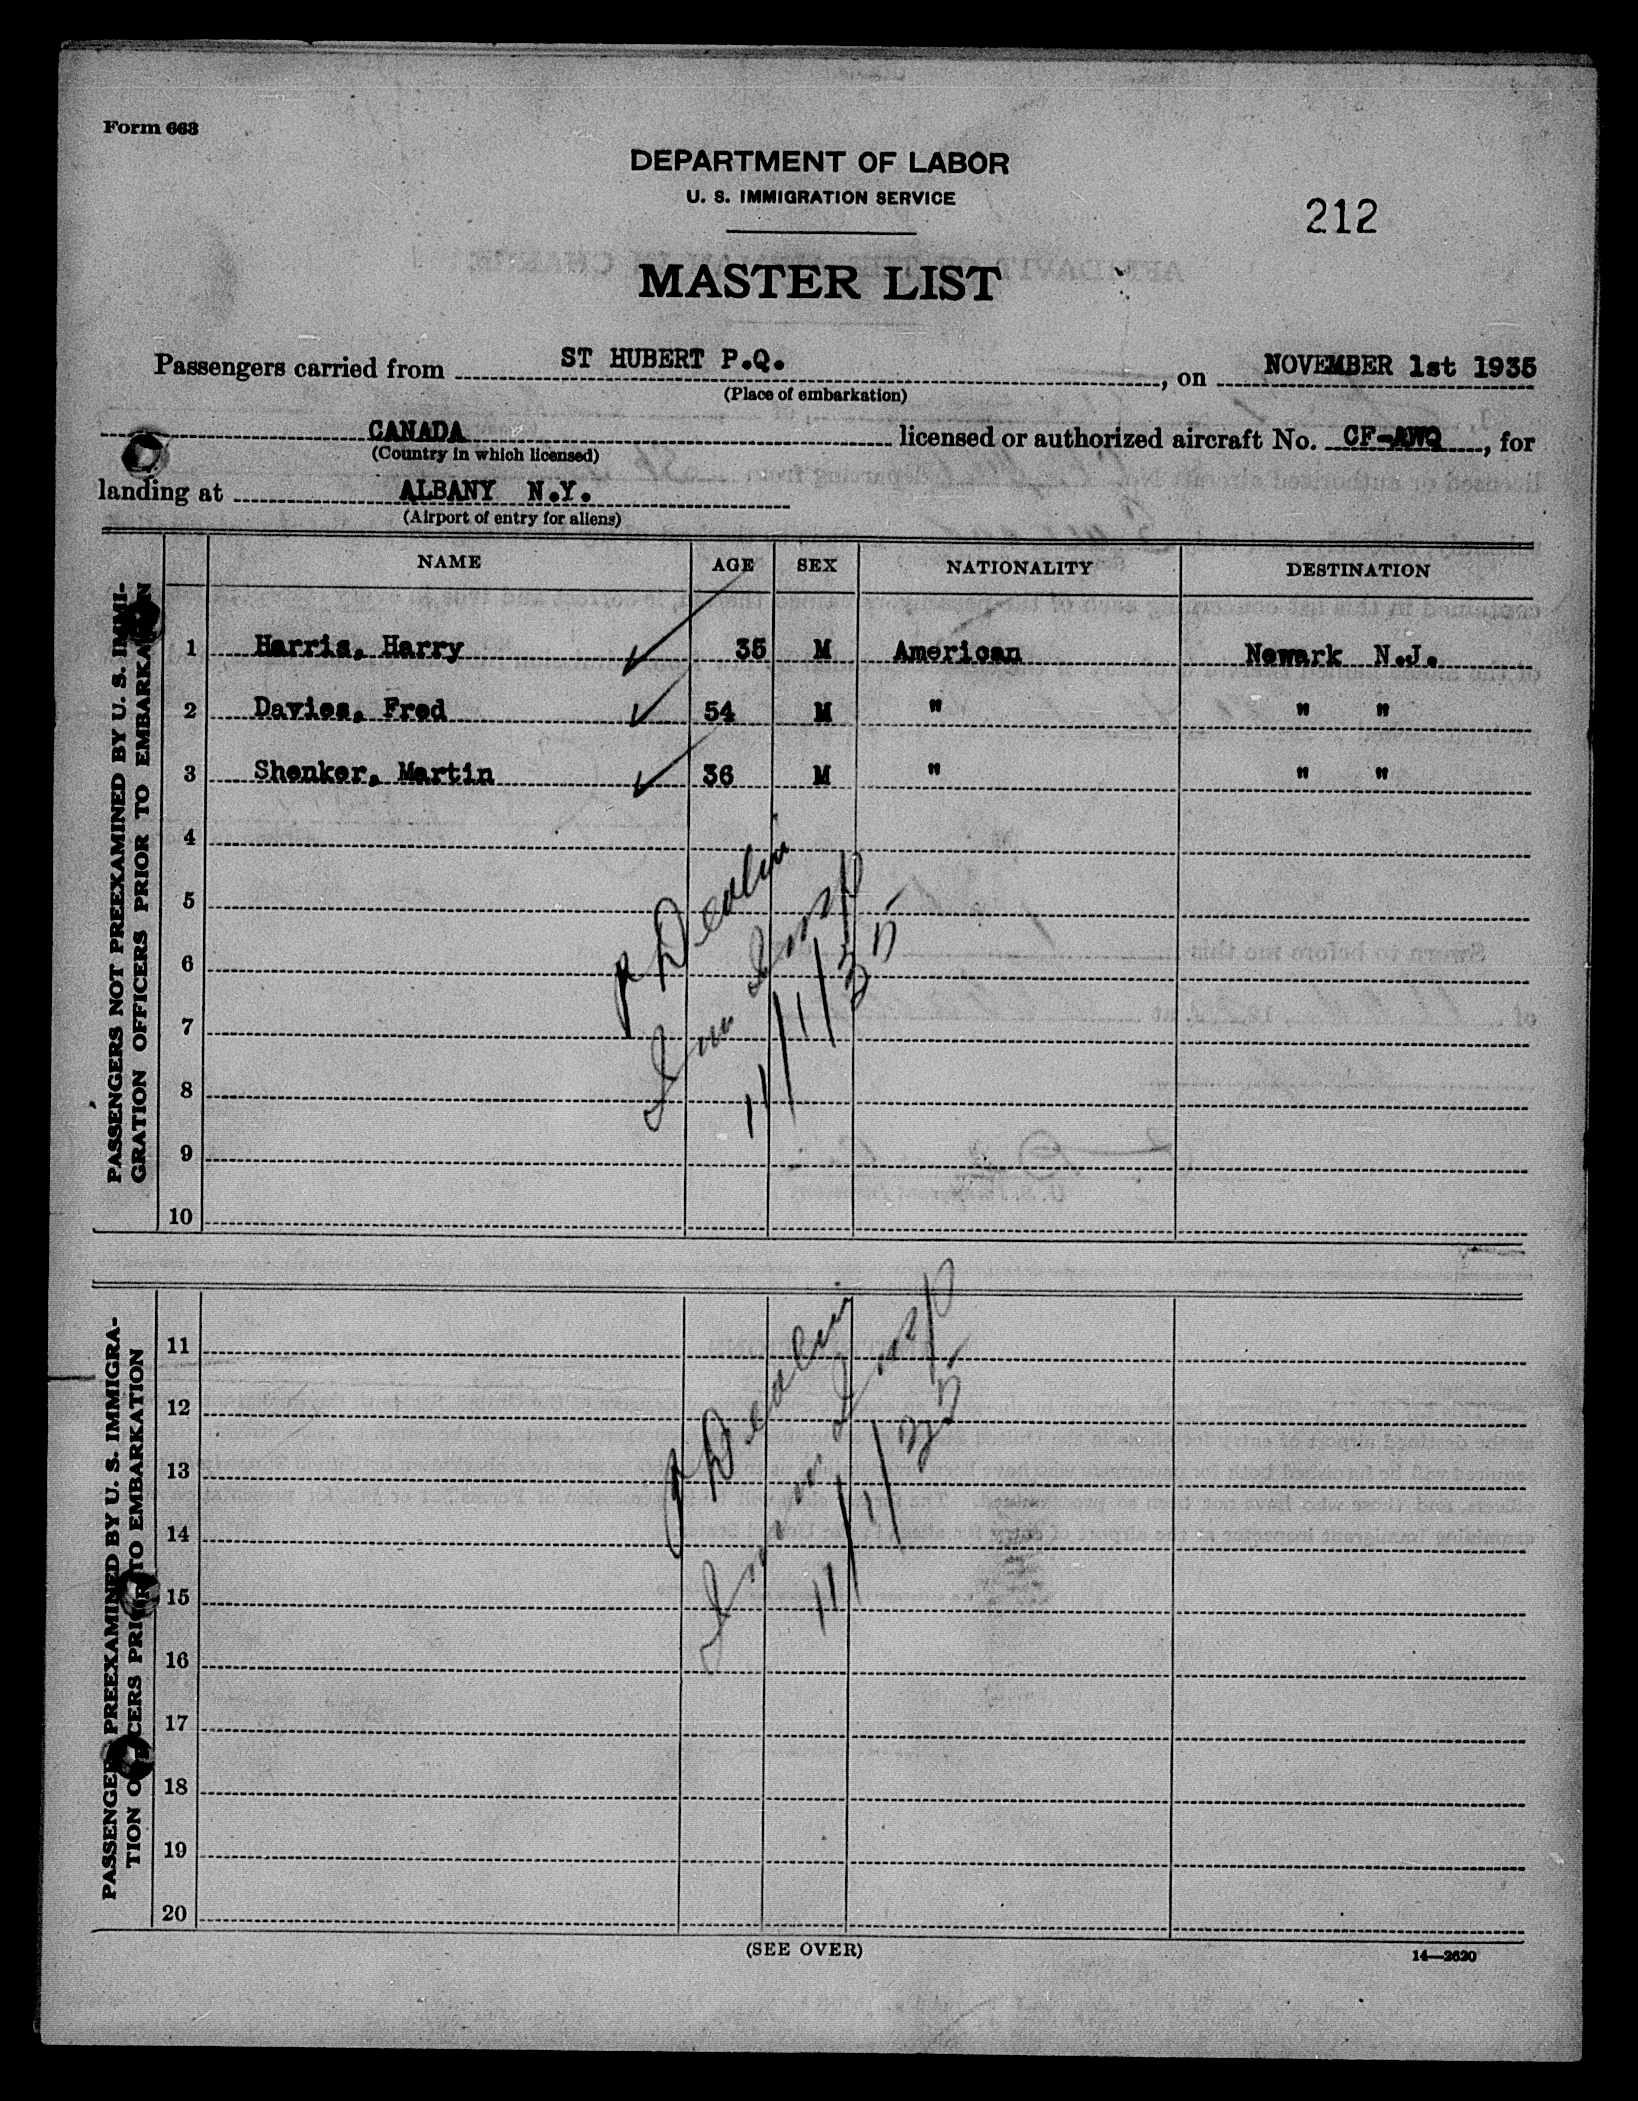 Form 663
DEPARTMENT OF LABOR
U. S. IMMIGRATION SERVICE
212
MASTER LIST
Passengers carried from ST HUBERT P.Q., on NOVEMBER 1st 1935
(Place of embarkation)
CANADA licensed or authorized aircraft No. CF-AWQ, for
(Country in which licensed)
landing at ALBANY N.Y.
(Airport of entry for aliens)
NAME AGE SEX NATIONALITY DESTINATION
PASSENGERS NOT PREEXAMINED BY U. S. IMMI-
GRATION OFFICERS PRIOR TO EMBARKATION
1 Harris, Harry 35 M American Newark N.J.
2 Davies, Fred 54 M " " "
3 Shenker, Martin 36 M " " "
4
5
6
7
8
9
10
Imm Insp
11/1/35
PASSENGERS PREEXAMINED BY U. S. IMMIGRA-
TION OFFICERS PRIOR TO EMBARKATION
11
12
13
14
15
16
17
18
19
20
Imm Insp
11/1/35
(SEE OVER)
14—2620